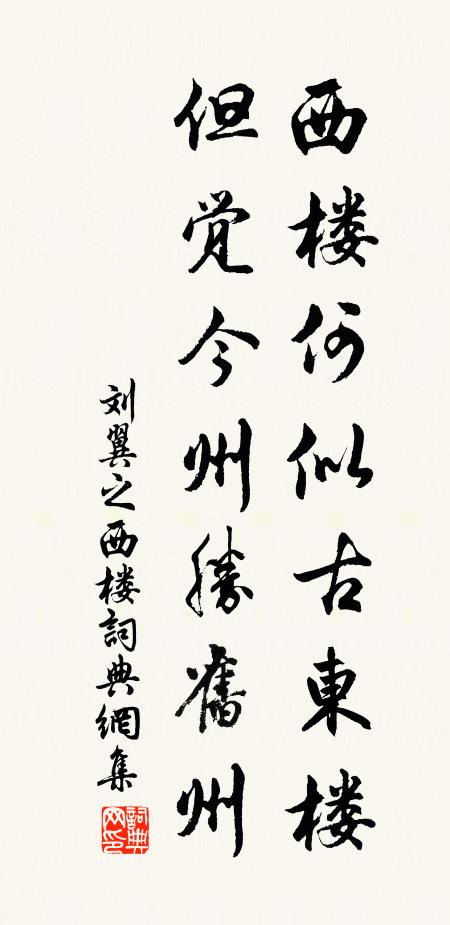 西楼何似古東楼
但觉今州勝舊州
刘翼之西楼詞典網集
詞典网印